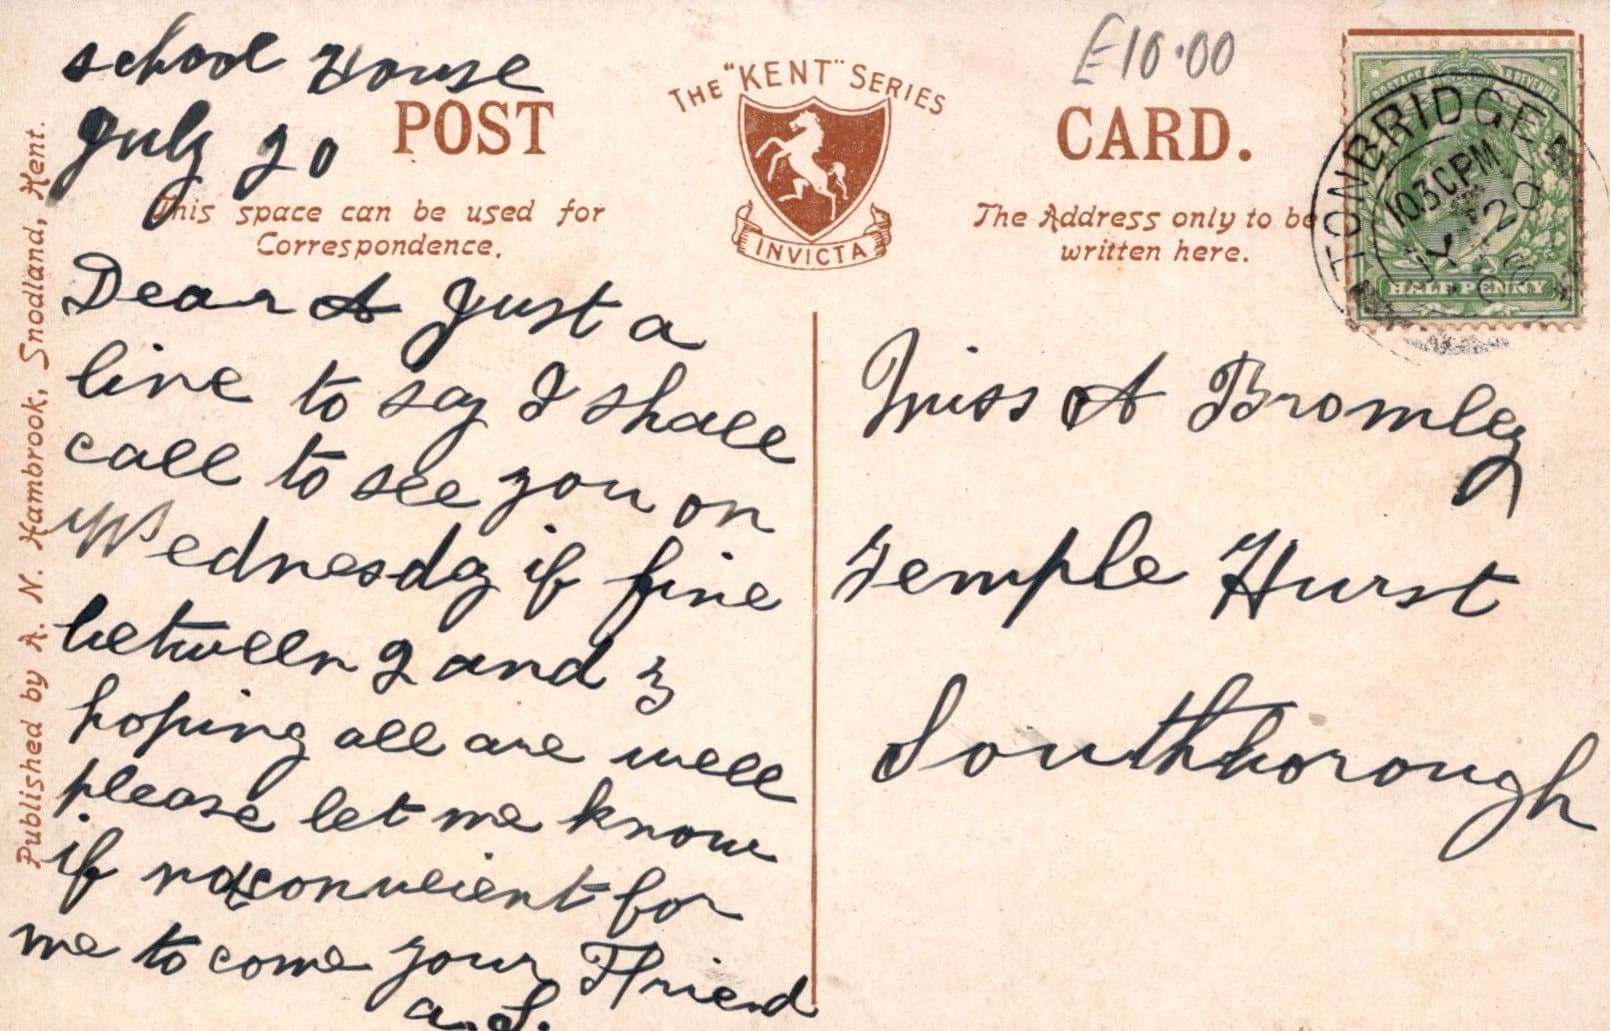 School House
July 20
£10.00
THE "KENT" SERIES
POST CARD.
INVICTA
This space can be used for
Correspondence.
The Address only to be
written here.
TONBRIDGE
1030PM
JY 20
POSTAGE REVENUE
HALFPENNY
Dear A Just a
line to say I shall
call to see you on
Wednesday if fine
between 2 and 3
hoping all are well
please let me know
if not convient for
me to come your Friend
a. S.
Miss A Bromley
Temple Hurst
Southborough
Published by A. N. Hambrook, Snodland, Kent.